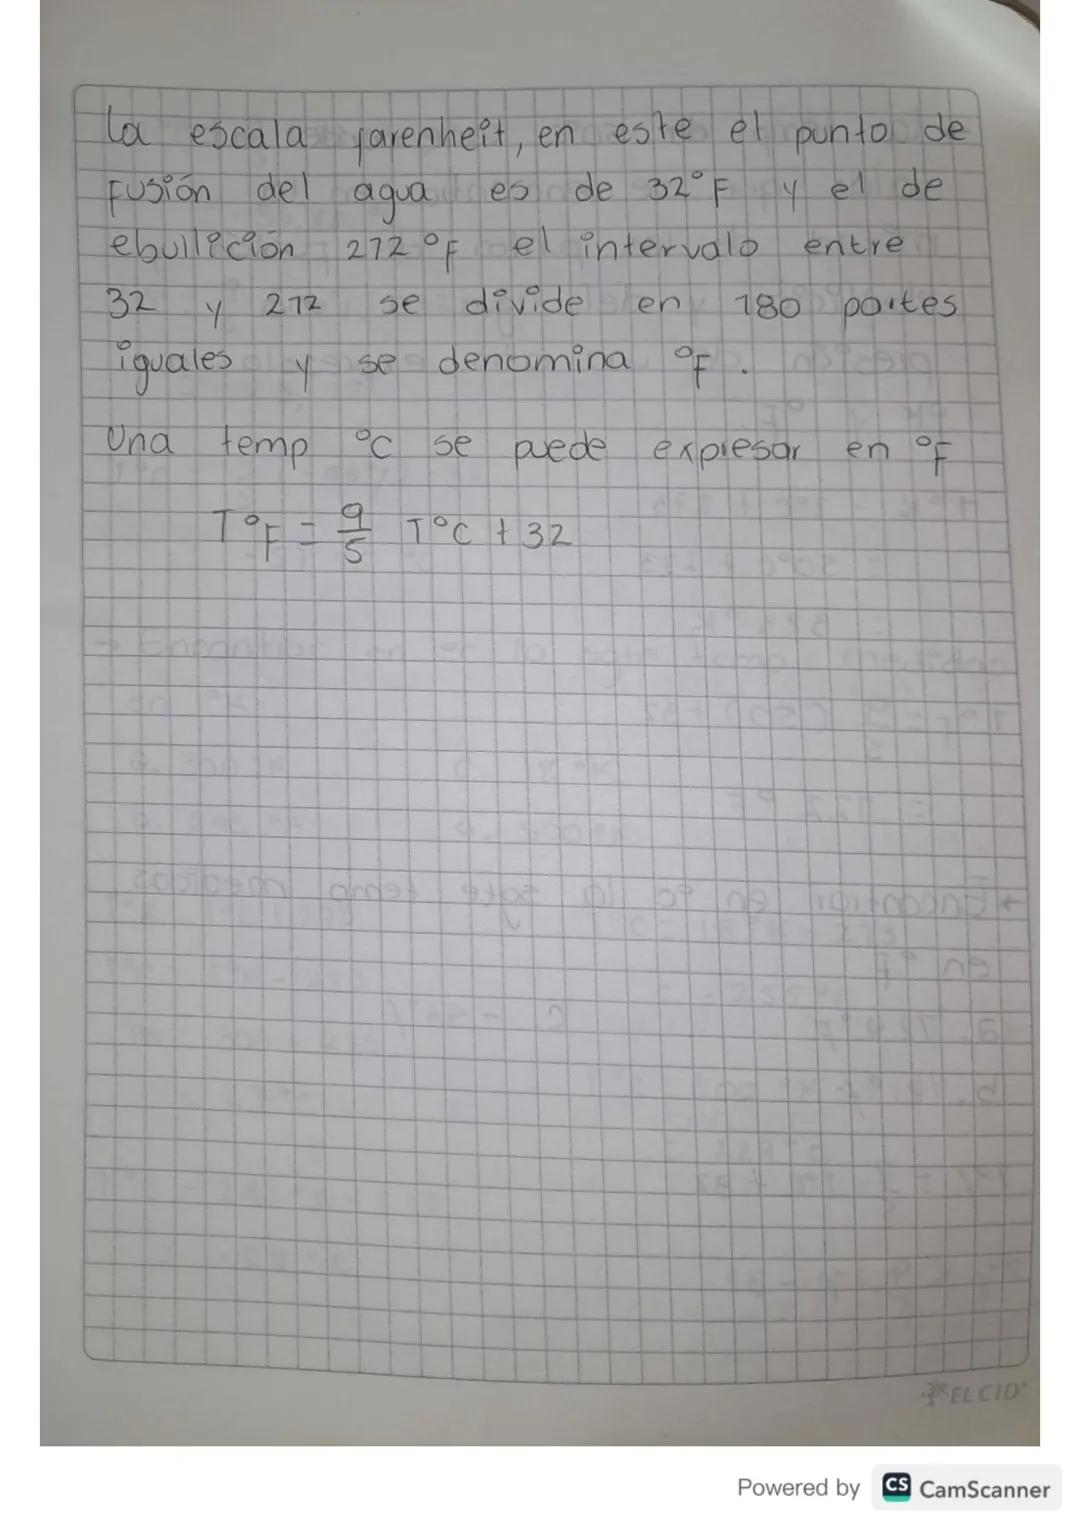 La escala farenheit, en este el punto de
fusión del agua es de 32°F y el de
ebullición 212 °F el intervalo entre
32 y 212 se divide en 180 partes
iguales y se denomina °F.
Una temp °C se puede expresar en °F
T°F = 9/5 T°C + 32
EL CID
Powered by CS CamScanner